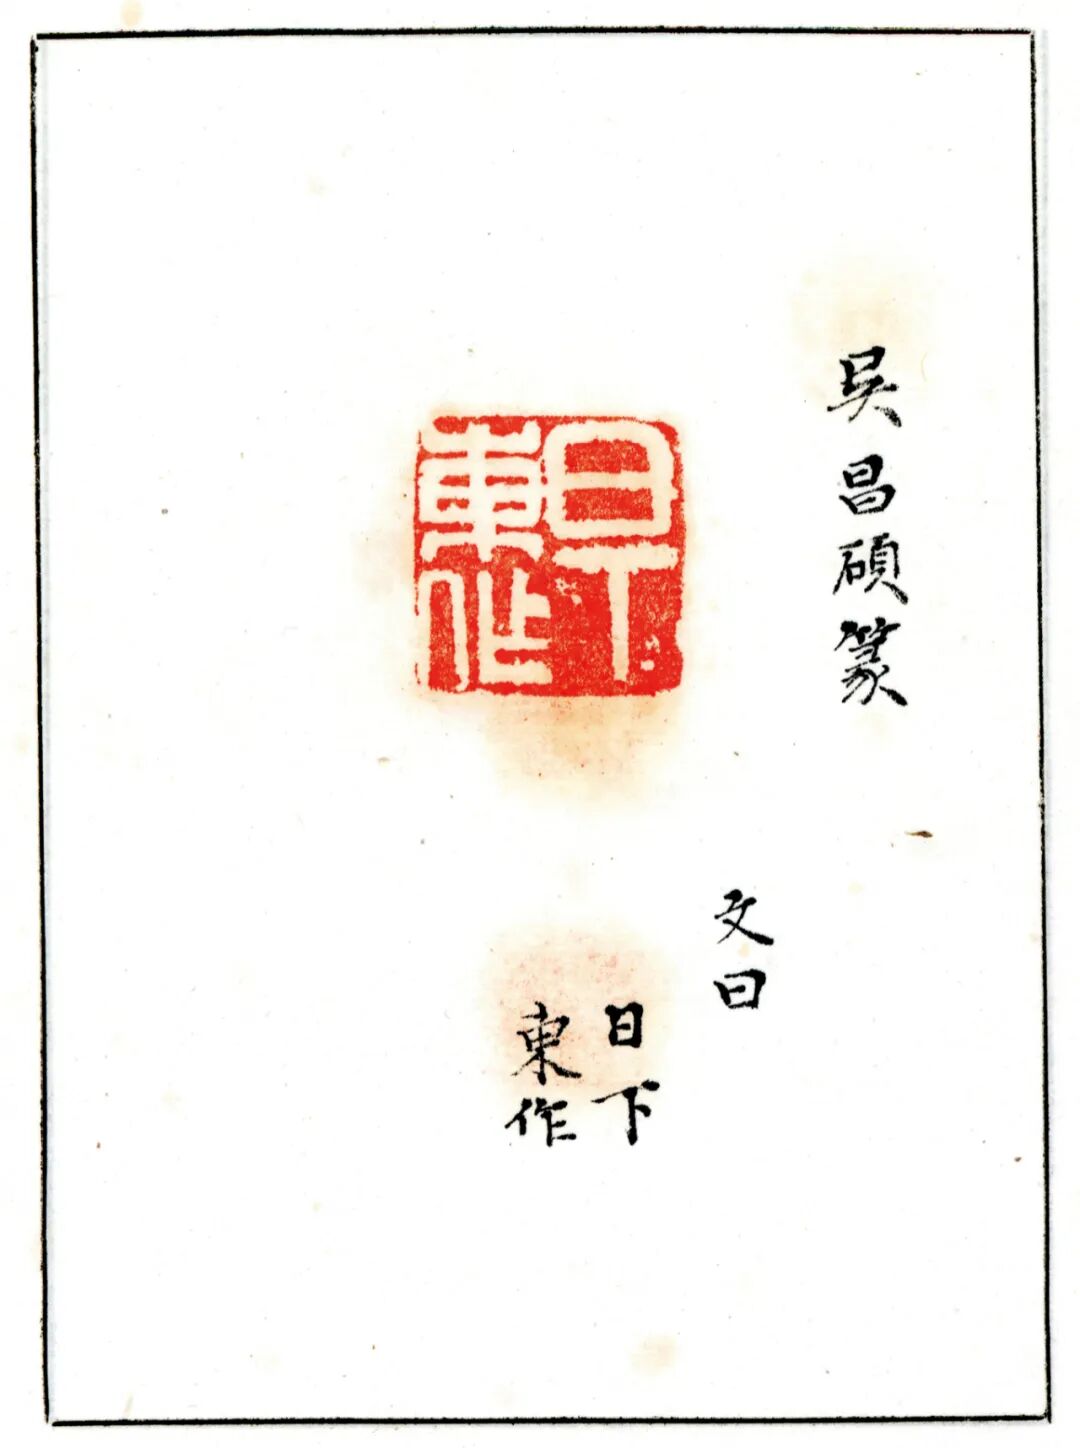 吴昌碩篆
日下
東作
文曰
日下
東作